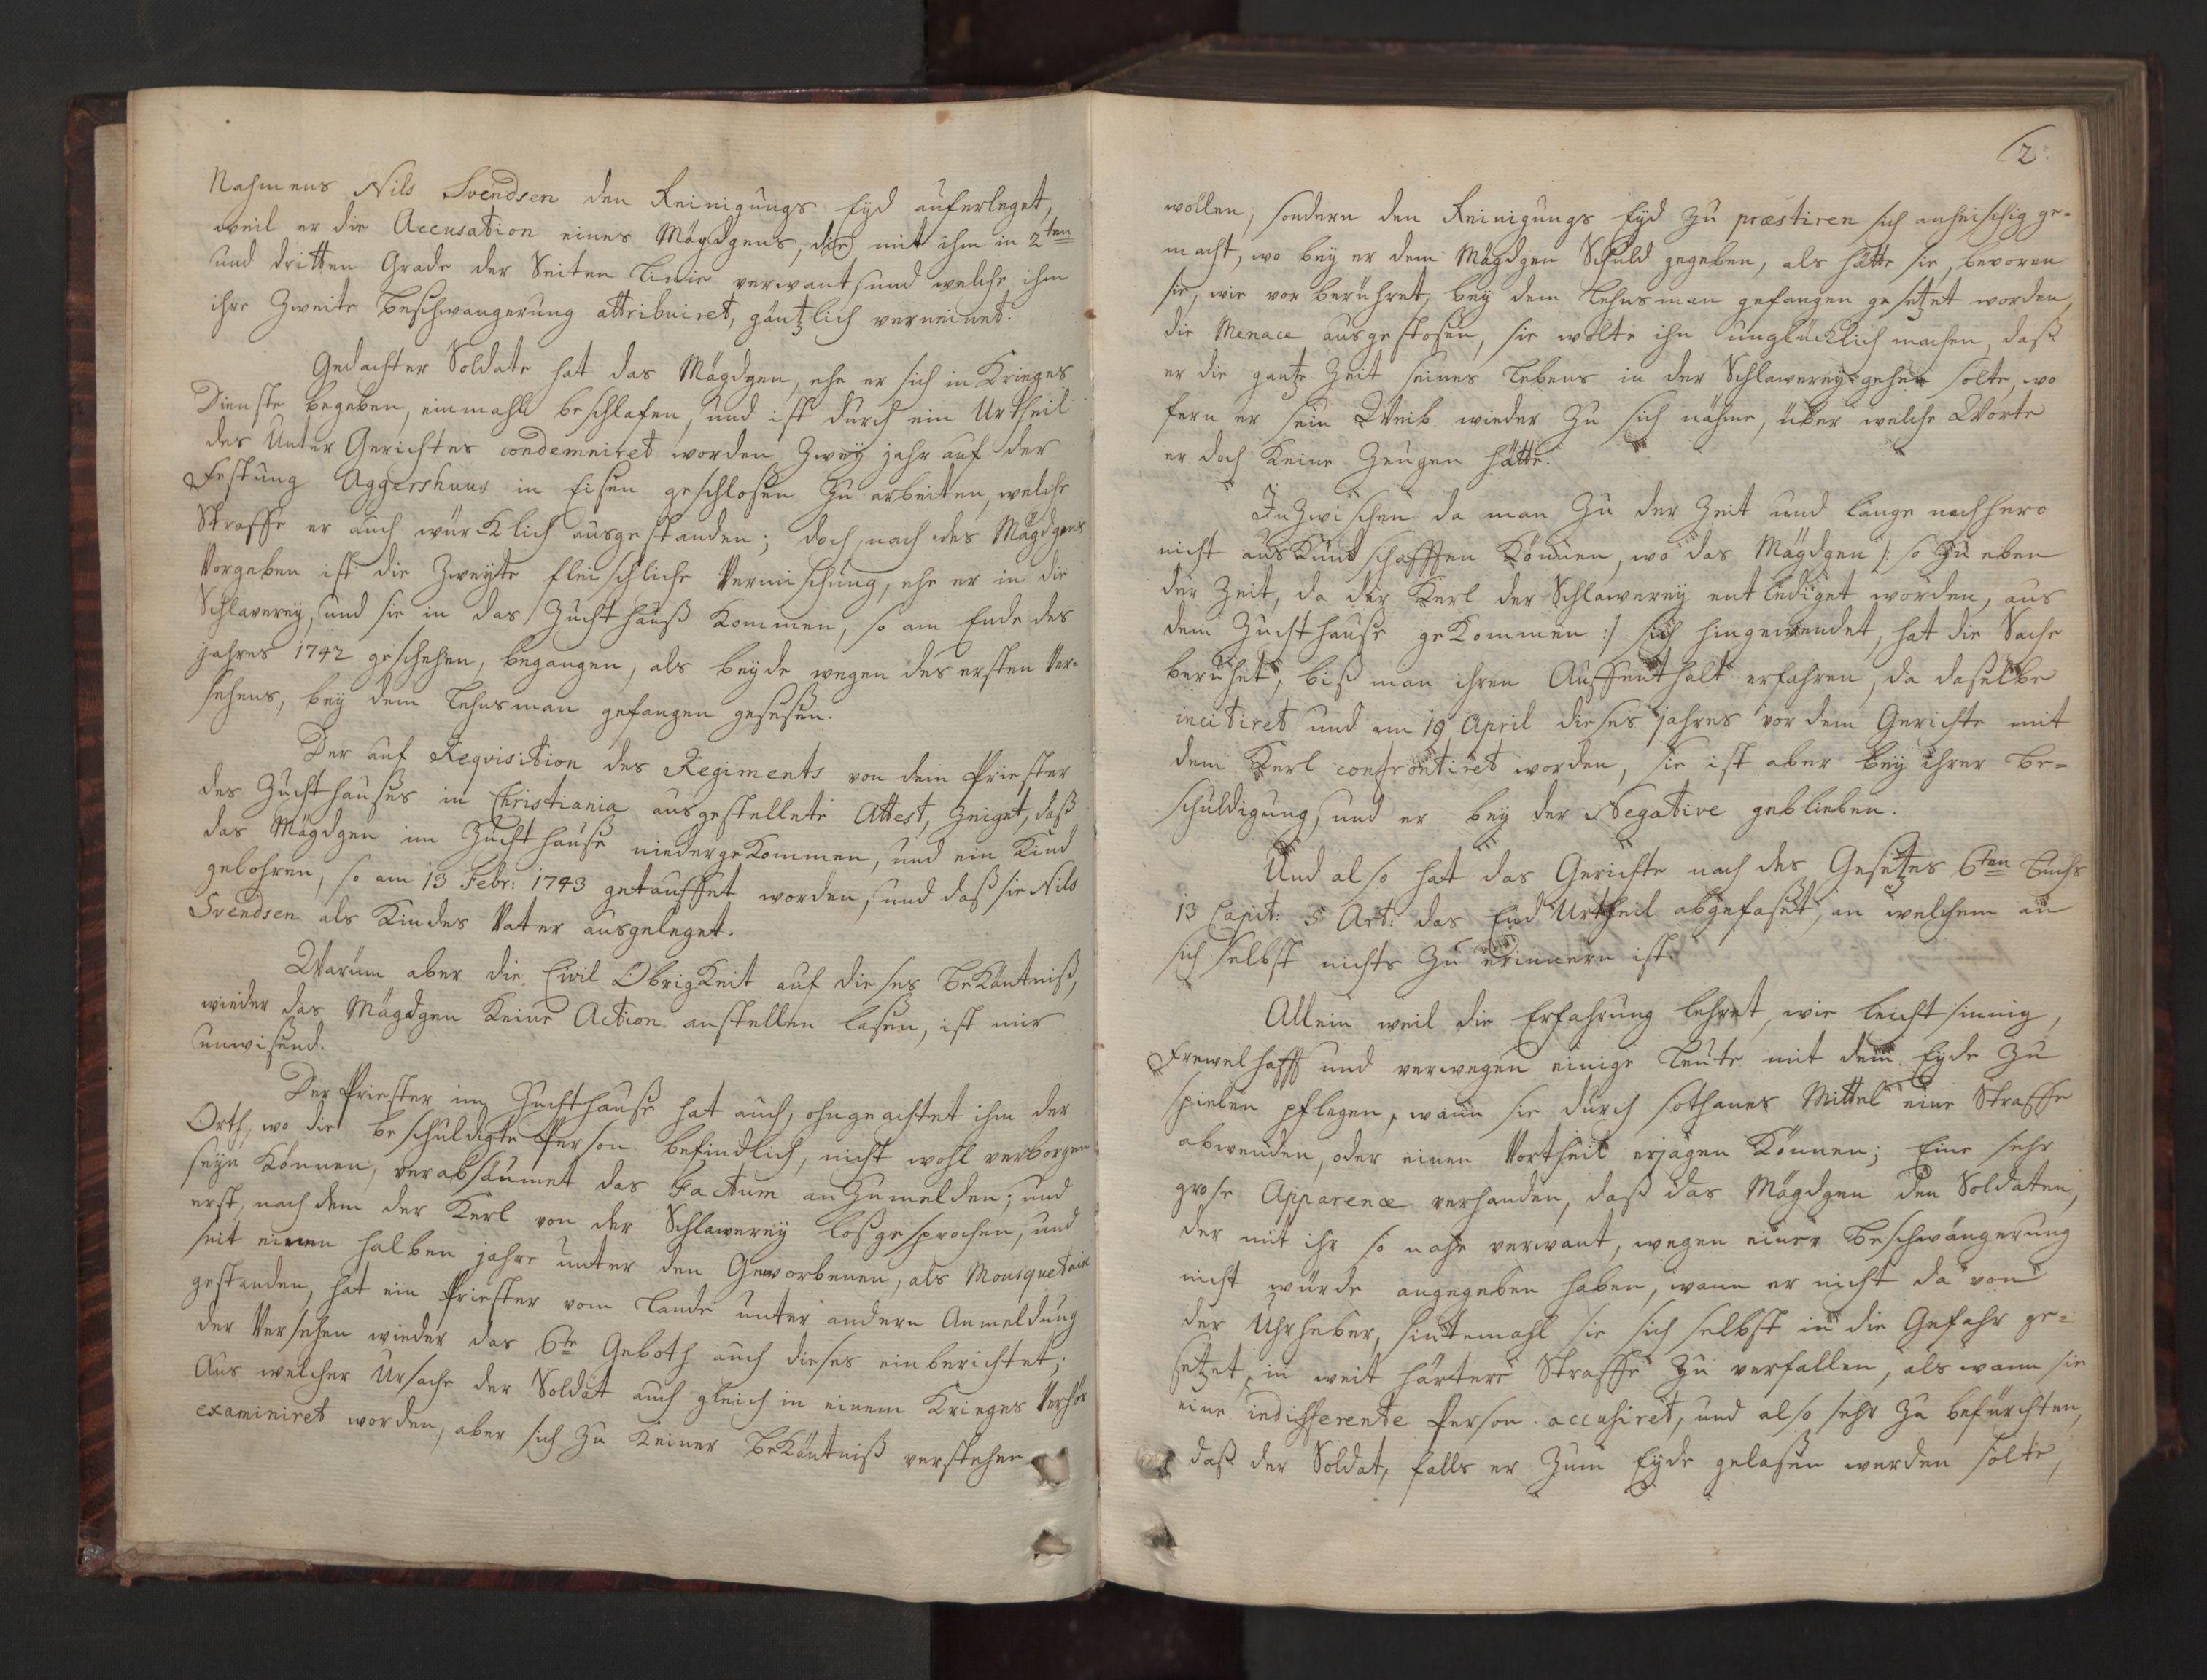 Nahmens Nils Svendsen den Reinigungs Eyd auferleget,
weil er die Accusation eines Mägdgens, die mit ihm in 2ten
und dritten Grade der Seiten Linie verwant, und welche ihm
ihre Zweite Beschwangerung attribuiret, gäntzlich verneinet.
Gedachter Soldate hat das Mägdgen, ehe er sich in Krieges
Dienste begeben, einmahl beschlafen, und ist durch ein Urtheil
des Unter Gerichtes condemniret worden Zwey jahr auf der
Festung Aggershuus in Eisen geschloßen Zu arbeiten, welche
Straffe er auch würcklich ausgestanden; doch nach des Mägdgens
Vorgeben ist die Zweyte fleischliche Vermischung, ehe er in die
Schlaverey, und sie in das Zuchthauß Kommen, so am Ende des
jahres 1742 geschehen, begangen, als beyde wegen des ersten Ver-
sehens, bey dem Lehnsman gefangen geseßen.
Der auf Reqvisition des Regiments von dem Priester
des Zuchthaußes in Christiania ausgestellete Attest, Zeiget, daß
das Mägdgen im Zuchthauße niedergeKommen, und ein Kind
gebohren, so am 13 Febr: 1743 getauffet worden, und daß sie Nils
Svendsen als Kindes Vater ausgeleget.
Warum aber die Civil ObrigKeit auf dieses BeKäntniß,
wieder das Mägdgen Keine Action anstellen laßen, ist mir
unwißend.
Der Priester im Zuchthauße hat auch, ohngeachtet ihm der
Orth, wo die beschuldigte Person befindlich, nicht wohl verborgen
seyn Können, verabsäumet das Factum anZumelden; und
erst, nach dem der Kerl von der Schlawerey loßgesprochen, und
seit einen halben jahre unter den Geworbenen, als Mousquetair
gestanden, hat ein Priester vom Lande unter andern Anmeldung
der Versehen wieder das 6te Geboth auch dieses einberichtet;
Aus welcher Ursache der Soldat auch gleich in einem Krieges Verhör
examiniret worden, aber sich Zu Keiner BeKäntniß verstehen
2.
wollen, sondern den Reinigungs Eyd Zu præstiren sich anheischig ge-
macht, wo bey er dem Mägdgen Schuld gegeben, als hätte sie, bevoren
sie, wie vor berühret, bey dem Lehnsman gefangen gesetzet worden,
die Menace ausgestoßen, sie wolte ihn unglücklich machen, daß
er die gantze Zeit seines Lebens in der Schlawerey gehen solte, wo
fern er sein Weib wieder Zu sich nähme, über welche Worte
er doch Keine Zeugen hätte.
InZwischen da man Zu der Zeit und lange nachhero
nicht ausKundschafften Können, wo das Mägdgen /: so Zu eben
der Zeit, da der Kerl der Schlawerey entlediget worden, aus
dem Zuchthause geKommen :/ sich hingewendet, hat die Sache
beruhet, biß man ihren Auffenthalt erfahren, da daselbe
incitiret und am 19 April dieses jahres vor dem Gerichte mit
dem Kerl confrontiret worden, sie ist aber bey ihrer Be-
schuldigung, und er bey der Negative geblieben.
Und also hat das Gerichte nach des Gesetzes 6ten Buchs
13 Capit: 5 Art: das End Urtheil abgefaßet, an welchem an
sich selbst nichts Zu erinnern ist.
Allein weil die Erfahrung lehret, wie leichtsinnig,
Frewelhafft und verwegen einige Leute mit dem Eyde Zu
spielen pflegen, wann sie durch sothanes Mittel eine Straffe
abwenden, oder einen Vortheil erjagen Können; Eine sehr
grose Apparence verhanden, daß das Mägdgen den Soldaten,
der mit ihr so nahe verwant, wegen einer Beschwängerung
nicht würde angegeben haben, wann er nicht da von
der Uhrheber, sintemahl sie sich selbst in die Gefahr ge-
setzet, in weit härtere Straffe Zu verfallen, als wann sie
eine indifferente Person accusiret, und also sehr Zu befürchten,
daß der Soldat, falls er Zum Eyde gelaßen werden solte,